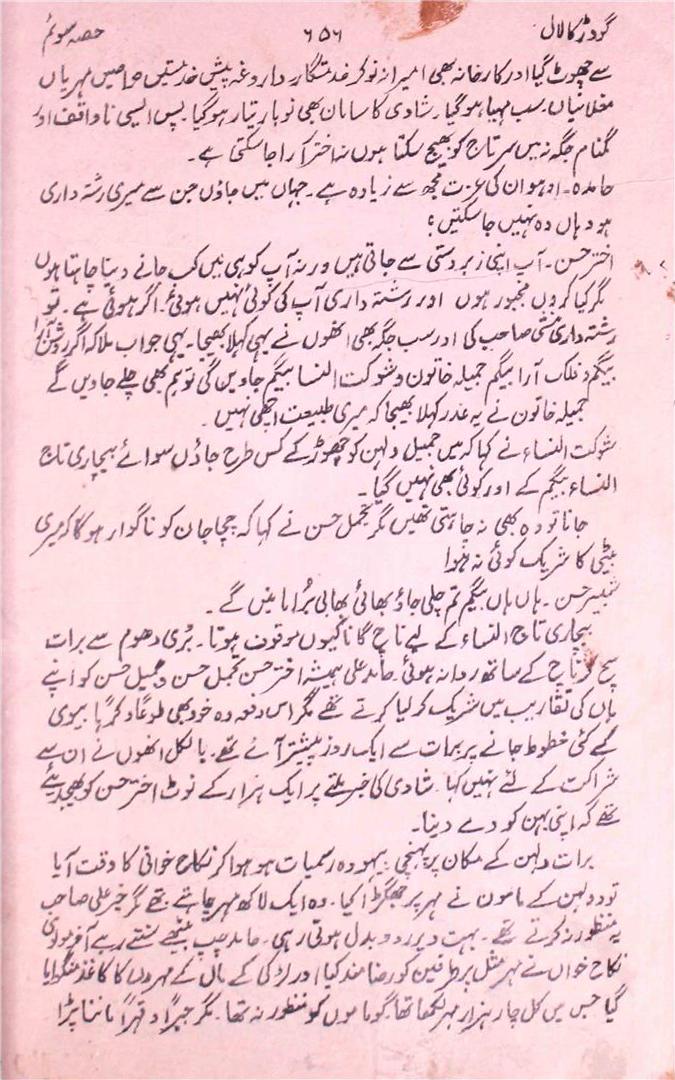 گودڑ کا لال ۶۵۶ حصہ سوئم
سے چھوٹ گیا اور کارخانہ بھی امیرانہ نوکر خدمتگار داروغہ پیش خدمتیں خواصیں مہریاں
مغلانیاں سب مہیا ہوگیا۔ شادی کا سامان بھی نوبار تیار ہوگیا۔ پس ایسی ناواقف اور
گمنام جگہ نہ میں سرتاج کو بھیج سکتا ہوں نہ اختر آرا جاسکتی ہے۔
حامدہ۔ اوہو ان کی عزت مجھ سے زیادہ ہے۔ جہاں میں جاؤں جن سے میری رشتہ داری
ہو وہاں وہ نہیں جاسکتیں؟
اختر حسن۔ آپ اپنی زبردستی سے جاتی ہیں ورنہ آپ کو ہی میں کب جانے دینا چاہتا ہوں
مگر کیا کروں مجبور ہوں اور رشتہ داری آپ کی کوئی نہیں ہوئی۔ اگر ہوئی ہے۔ تو
رشتہ داری منشی صاحب کی اور سب جگہ بھی انھوں نے یہی کہلا بھیجا۔ یہی جواب ملا کہ اگر روشن آرا
بیگم و فلک آرا بیگم جمیلہ خاتون و شوکت النسا بیگم جاویں گی تو ہم بھی چلے جاویں گے
جمیلہ خاتون نے یہ عذر کہلا بھیجا کہ میری طبیعت اچھی نہیں۔
شوکت النساء نے کہا کہ میں جمیل دلہن کو چھوڑ کے کس طرح جاؤں سوائے بیچاری تاج
النساء بیگم کے اور کوئی بھی نہیں گیا۔
جانا تو وہ بھی نہ چاہتی تھیں مگر تجمل حسن نے کہا کہ چچا جان کو ناگوار ہوگا کہ میری
بیٹی کا شریک کوئی نہ ہوا
شبیر حسن۔ ہاں ہاں بیگم تم چلی جاؤ بھائی بھابی بُرا مانیں گے۔
بیچاری تاج النساء کے لیے ناچ گانا کیوں موقوف ہوتا۔ بڑی دھوم سے برات
سج کر تاج کے ساتھ روانہ ہوئی۔ حامد علی ہمیشہ اختر حسن تجمل حسن و جمیل حسن کو اپنے
ہاں کی تقاریب میں شریک کرلیا کرتے تھے مگر اس دفعہ وہ خود بھی طوعاً و کرہاً بیوی
کے کئی خطوط جانے پر برات سے ایک روز پیشتر آئے تھے۔ بالکل انھوں نے ان سے
شراکت کے لئے نہیں کہا۔ شادی کی خبر ملتے پر ایک ہزار کے نوٹ اختر حسن کو بھیجدیئے
تھے کہ اپنی بہن کو دے دینا۔
برات دلہن کے مکان پر پہنچی۔ بیہودہ رسمیات ہو ہوا کر نکاح خوانی کا وقت آیا
تو دولہن کے ماموں نے مہر پر جھگڑا کیا۔ وہ ایک لاکھ مہر چاہتے تھے مگر خیر علی صاحب
یہ منظور نہ کرتے تھے۔ بہت دیر رد و بدل ہوتی رہی۔ حامد چپ بیٹھے سنتے رہے آخر مولوی
نکاح خواں نے مہر مثل پر طرفین کو رضامند کیا اور لڑکی کے ماں کے مہروں کا کاغذ منگوایا
گیا جس میں کل چار ہزار مہر لکھا تھا۔ گو ماموں کو منظور نہ تھا۔ مگر جبراً و قہراً ماننا پڑا